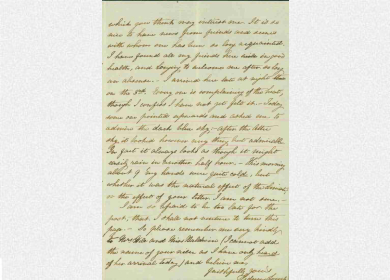 which you think may interest me. It is so
nice to have news from friends and scenes
with whom one has been so long acquainted.
I have found all my friends here in good
health, and longing to welcome me after so long
an absence. - I arrived here late at night
on the 8th. Every one is complaining of the heat,
though I confess I have not yet felt it. - Today,
some one pointed upwards and asked me to
admire the dark blue sky; - after the
sky, it looked however very thin, but
In fact it always looks as though it might
easily rain in another half hour. - this morning
about 9 my hands were quite cold; but
whether it was the natural effect of the
or the effect of your letter I am not sure. -
I am so afraid to be too late for the
post, that I shall not venture to turn this
page - So please remember me very kindly
to and Miss Baldwin (I cannot add
the name of your sister as I have only heard
of her arrival today) and believe me,
faithfully yours